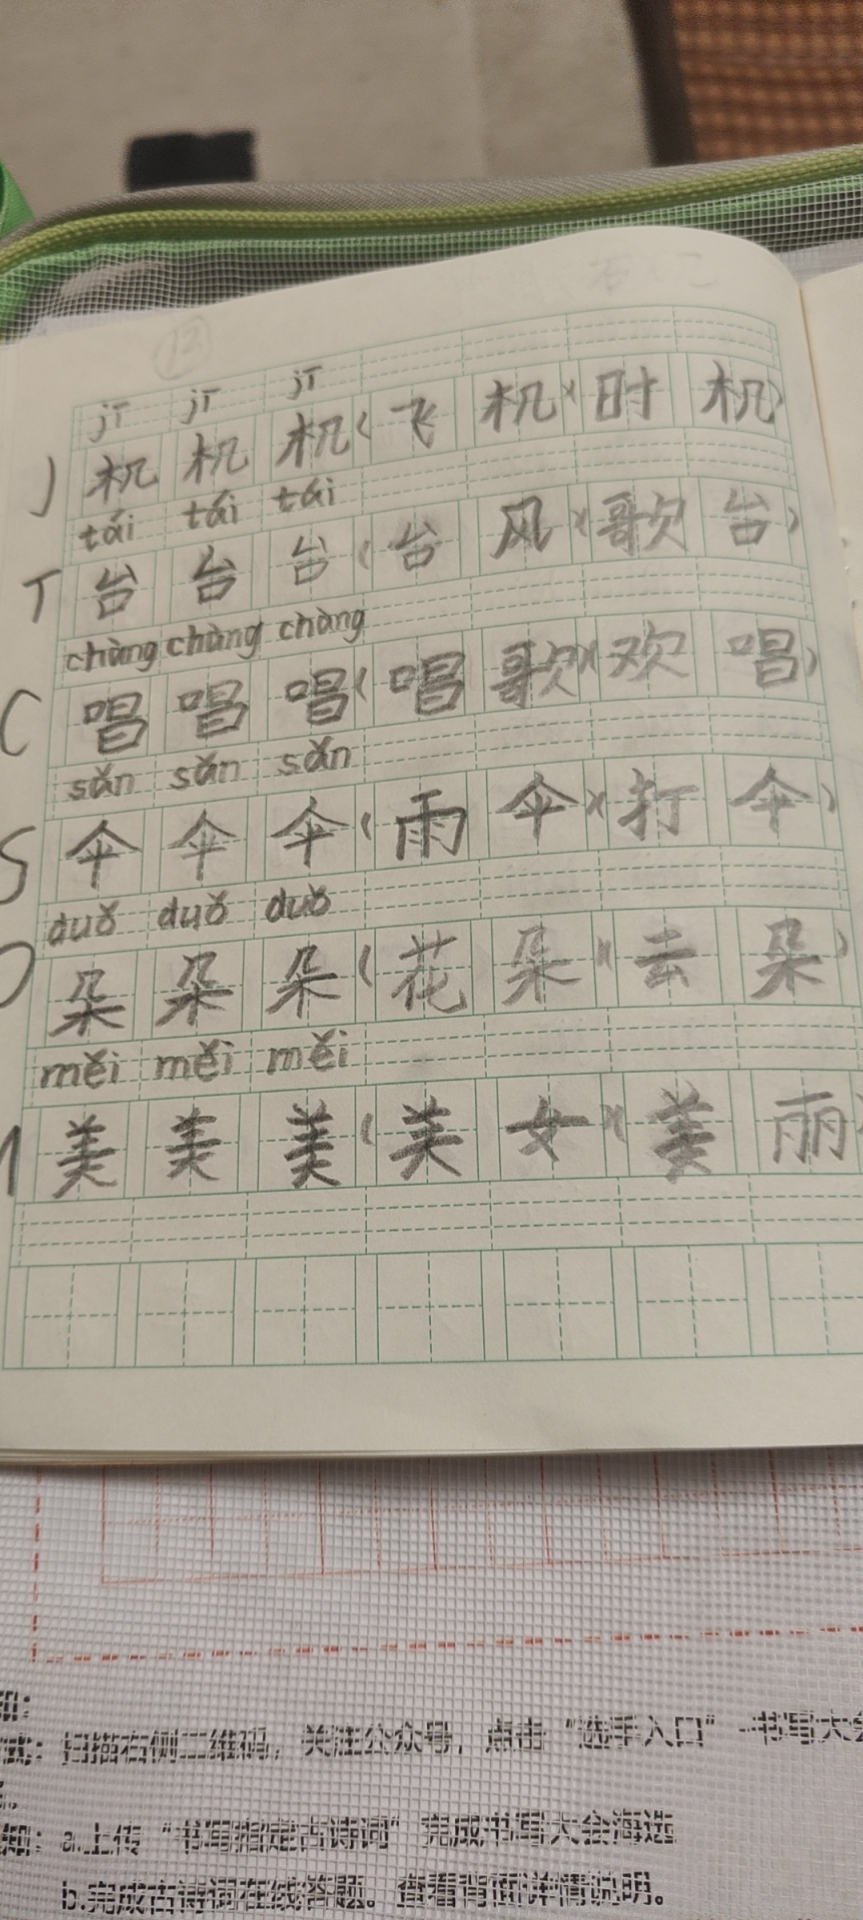 12
jī jī jī
J 机 机 机 ( 飞 机 )( 时 机 )
tái tái tái
T 台 台 台 ( 台 风 )( 歌 台 )
chàng chàng chàng
C 唱 唱 唱 ( 唱 歌 )( 欢 唱 )
sǎn sǎn sǎn
S 伞 伞 伞 ( 雨 伞 )( 打 伞 )
duǒ duǒ duǒ
D 朵 朵 朵 ( 花 朵 )( 云 朵 )
měi měi měi
M 美 美 美 ( 美 女 )( 美 丽 )
扫描右侧二维码，关注公众号，点击“选手入口”-书写大会
a.上传“书写指定古诗词”完成书写大会海选
b.完成古诗词在线答题。查看背面详情说明。